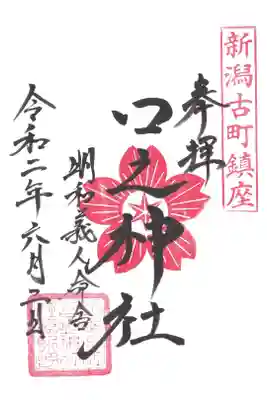 新潟古町鎮座
奉拝
口之神社
明和義人命
令和二年六月日